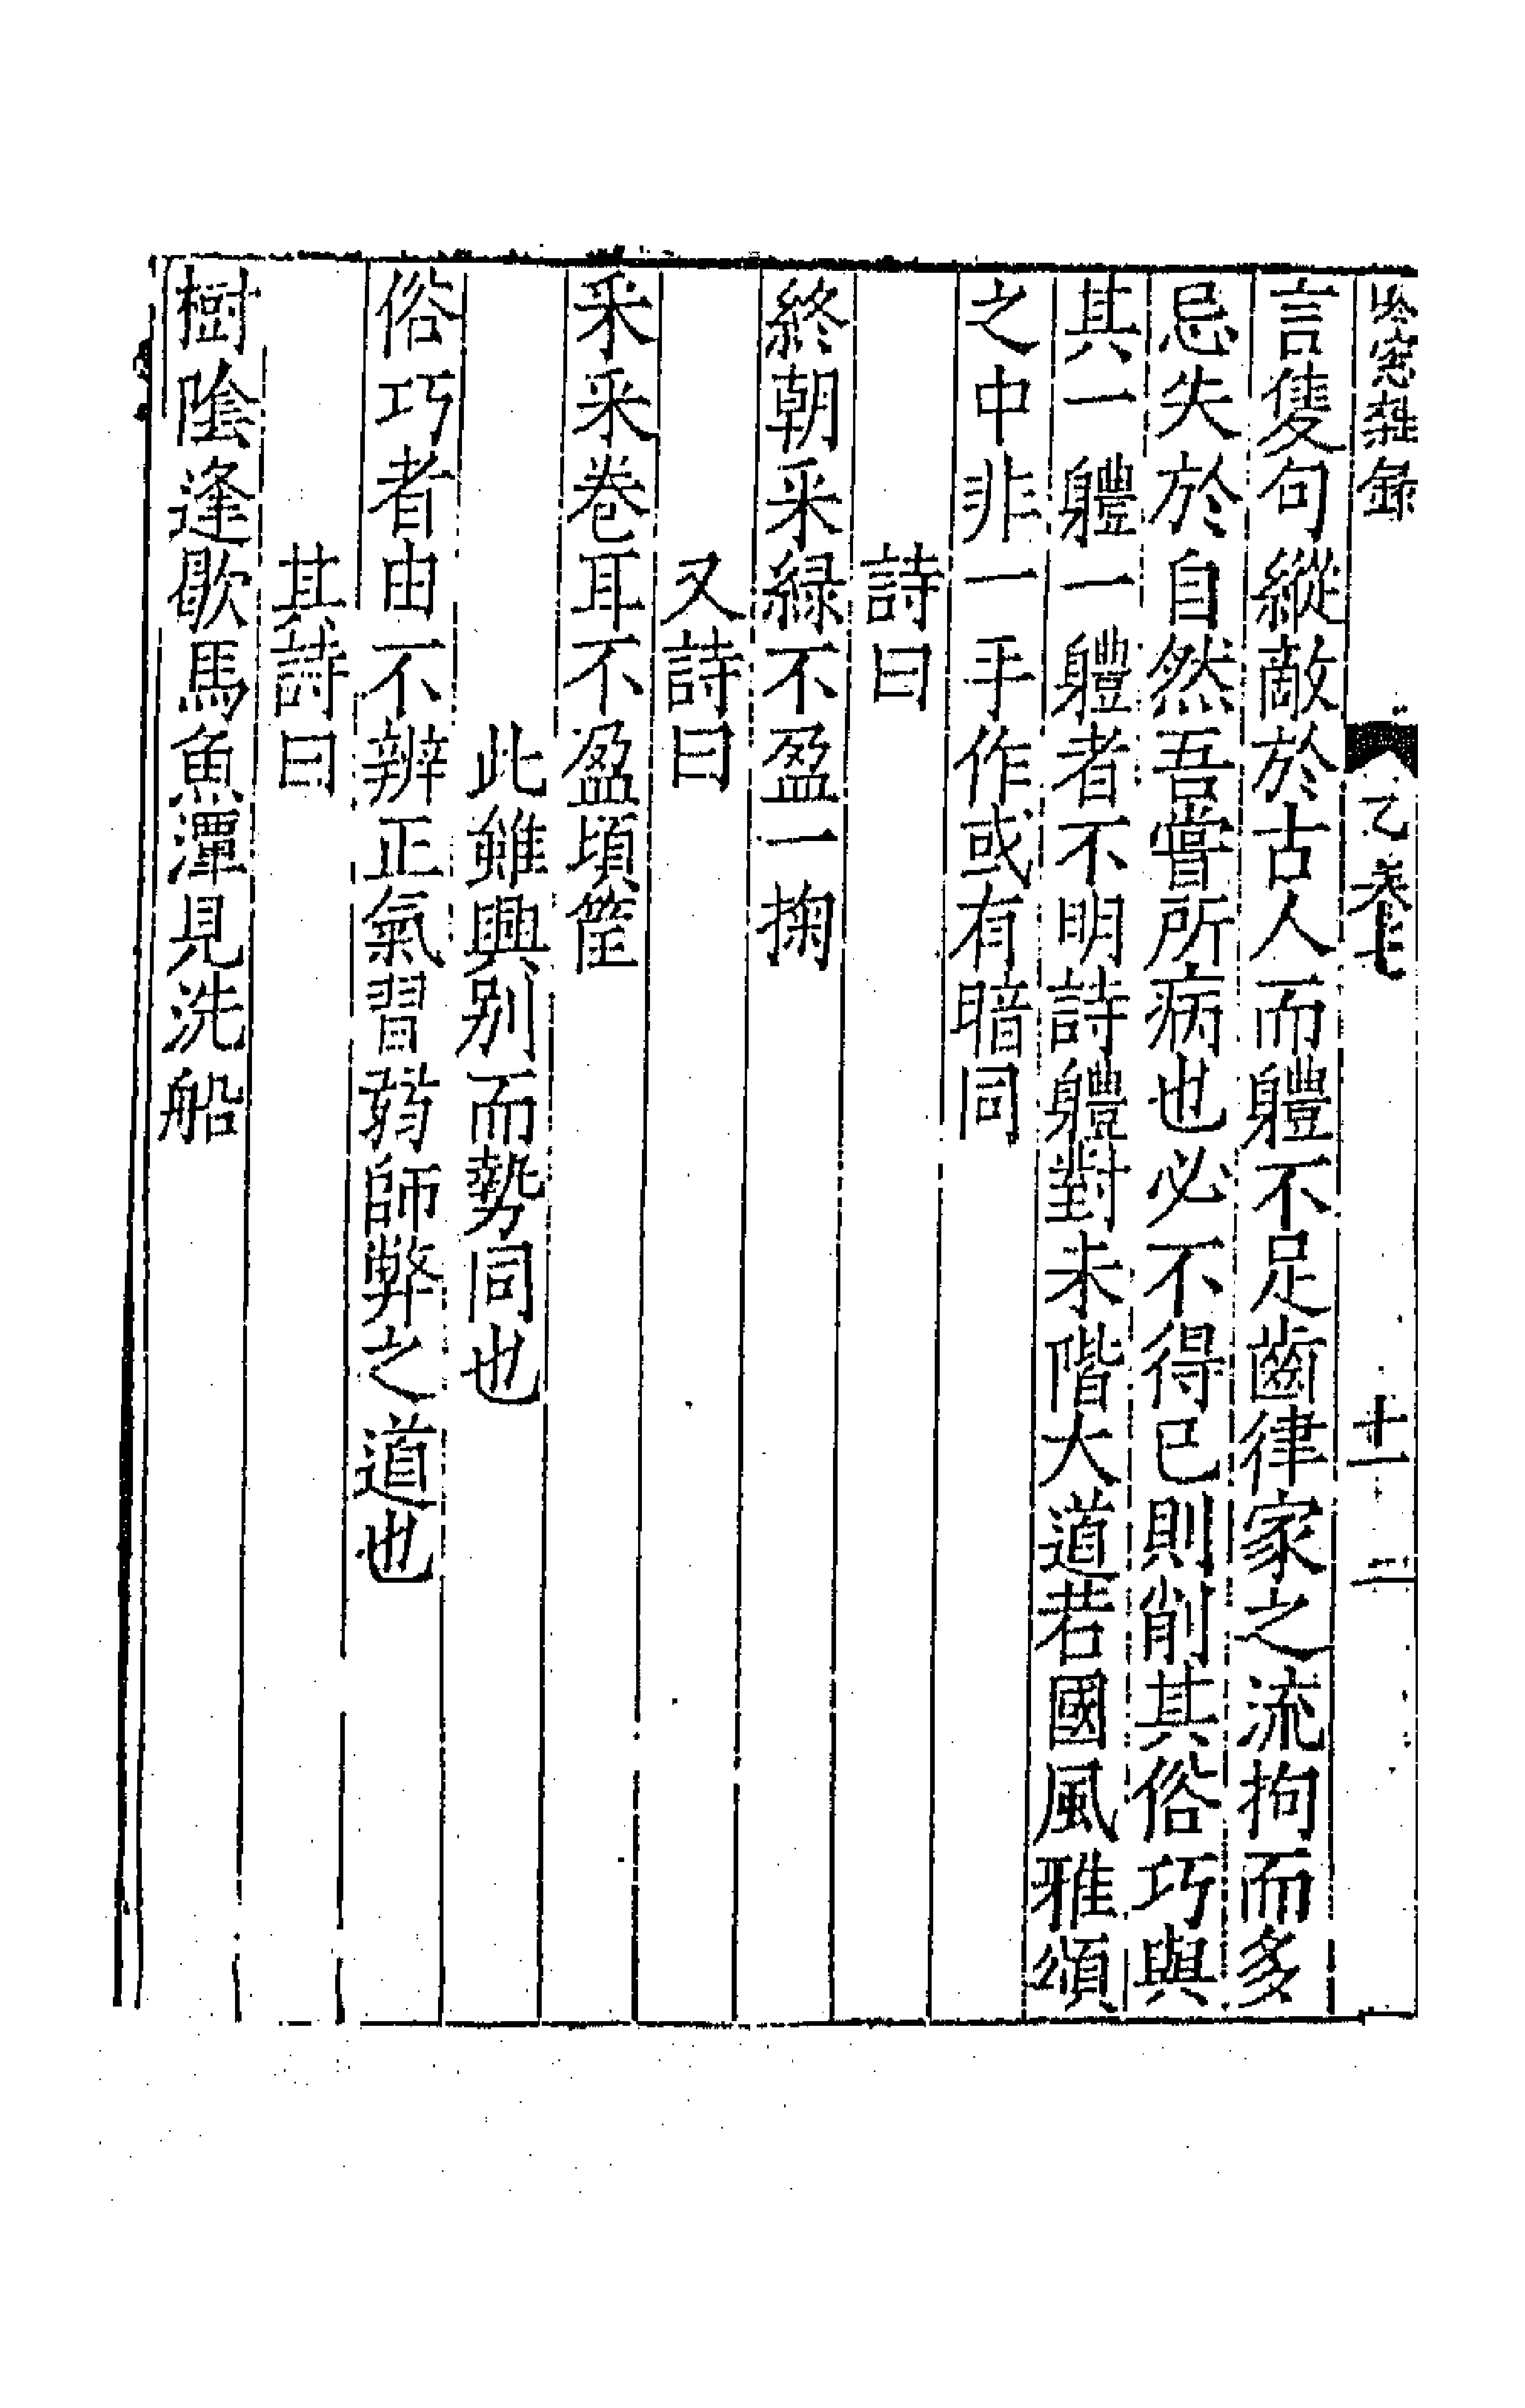 吟窻雜録 乙卷七 十一 二
言隻句縱敵於古人而軆不足齒律家之流拘而多
忌失於自然吾嘗所病也必不得已則削其俗巧與
其一軆一軆者不明詩軆對未階大道若國風雅頌
之中非一手作或有暗同
詩曰
終朝采緑不盈一掬
又詩曰
采采卷耳不盈頃筐
此雖興别而勢同也
俗巧者由不辨正氣習弱師弊之道也
其詩曰
樹隂逢歇馬魚潭見洗船